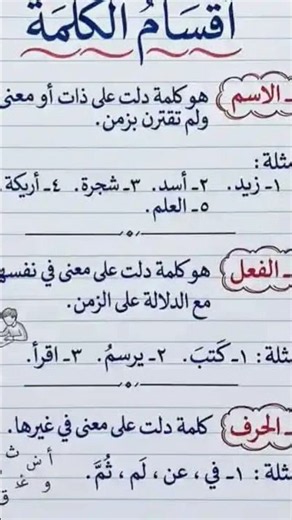 أقسَامُ الكَلِمَة
ـ الاسم هو كلمة دلت على ذات أو معنى
ولم تقترن بزمن.
مثلة :
١ـ زيد. ٢ـ أسد. ٣ـ شجرة. ٤ـ أريكة.
٥ـ العلم.
ـ الفعل هو كلمة دلت على معنى في نفسه
مع الدلالة على الزمن.
مثلة : ١ـ كَتبَ. ٢ـ يرسمُ. ٣ـ اقرأ.
ـ الحرف كلمة دلت على معنى في غيرها.
مثلة : ١ـ في ، عن ، لَم ، ثُمَّ.
أ س ث
و غ ق